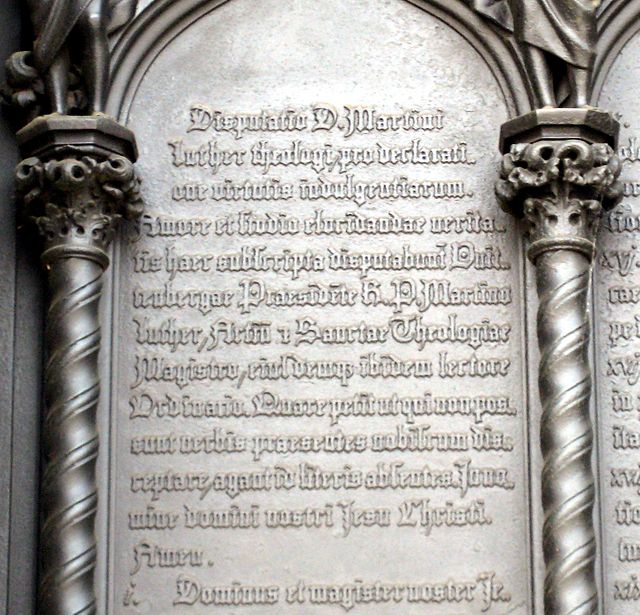 Disputatio D. Martini
Luther theologi, pro declarati-
one virtutis indulgentiarum.
Amore et studio elucidandae verita-
tis haec subscripta disputabunt Vuit-
tenbergae Praesidēte R. P. Martino
Luther, Artiū & Sanctae Theologiae
Magistro, eiusdemq; ibidem lectore
Ordinario. Quare petit ut qui non pos-
sunt verbis praesentes nobiscum dis-
ceptare, agant id literis absentes. Inno-
mine domini nostri Jesu Christi.
Amen.
i. Dominus et magister noster Je-